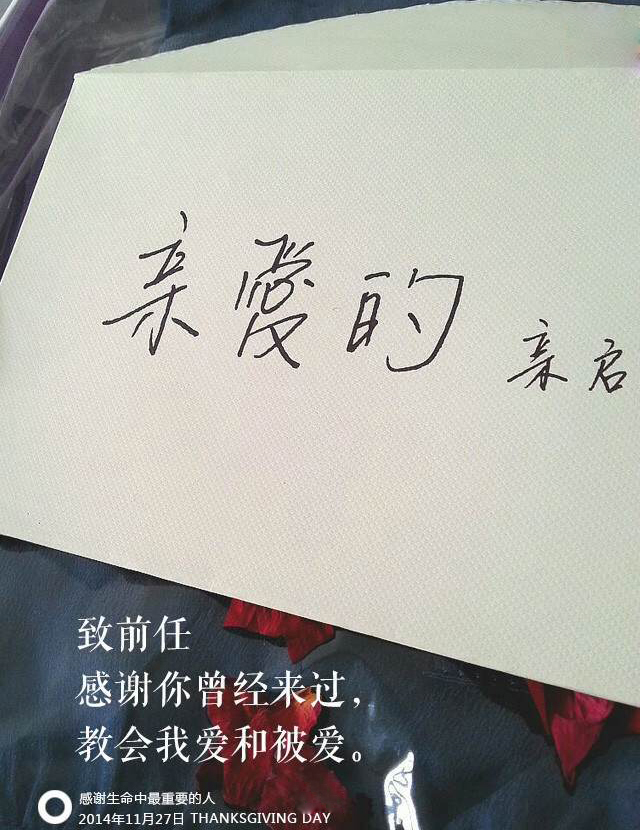 亲愛的
亲启
致前任
感谢你曾经来过，
教会我爱和被爱。
感谢生命中最重要的人
2014年11月27日 THANKSGIVING DAY